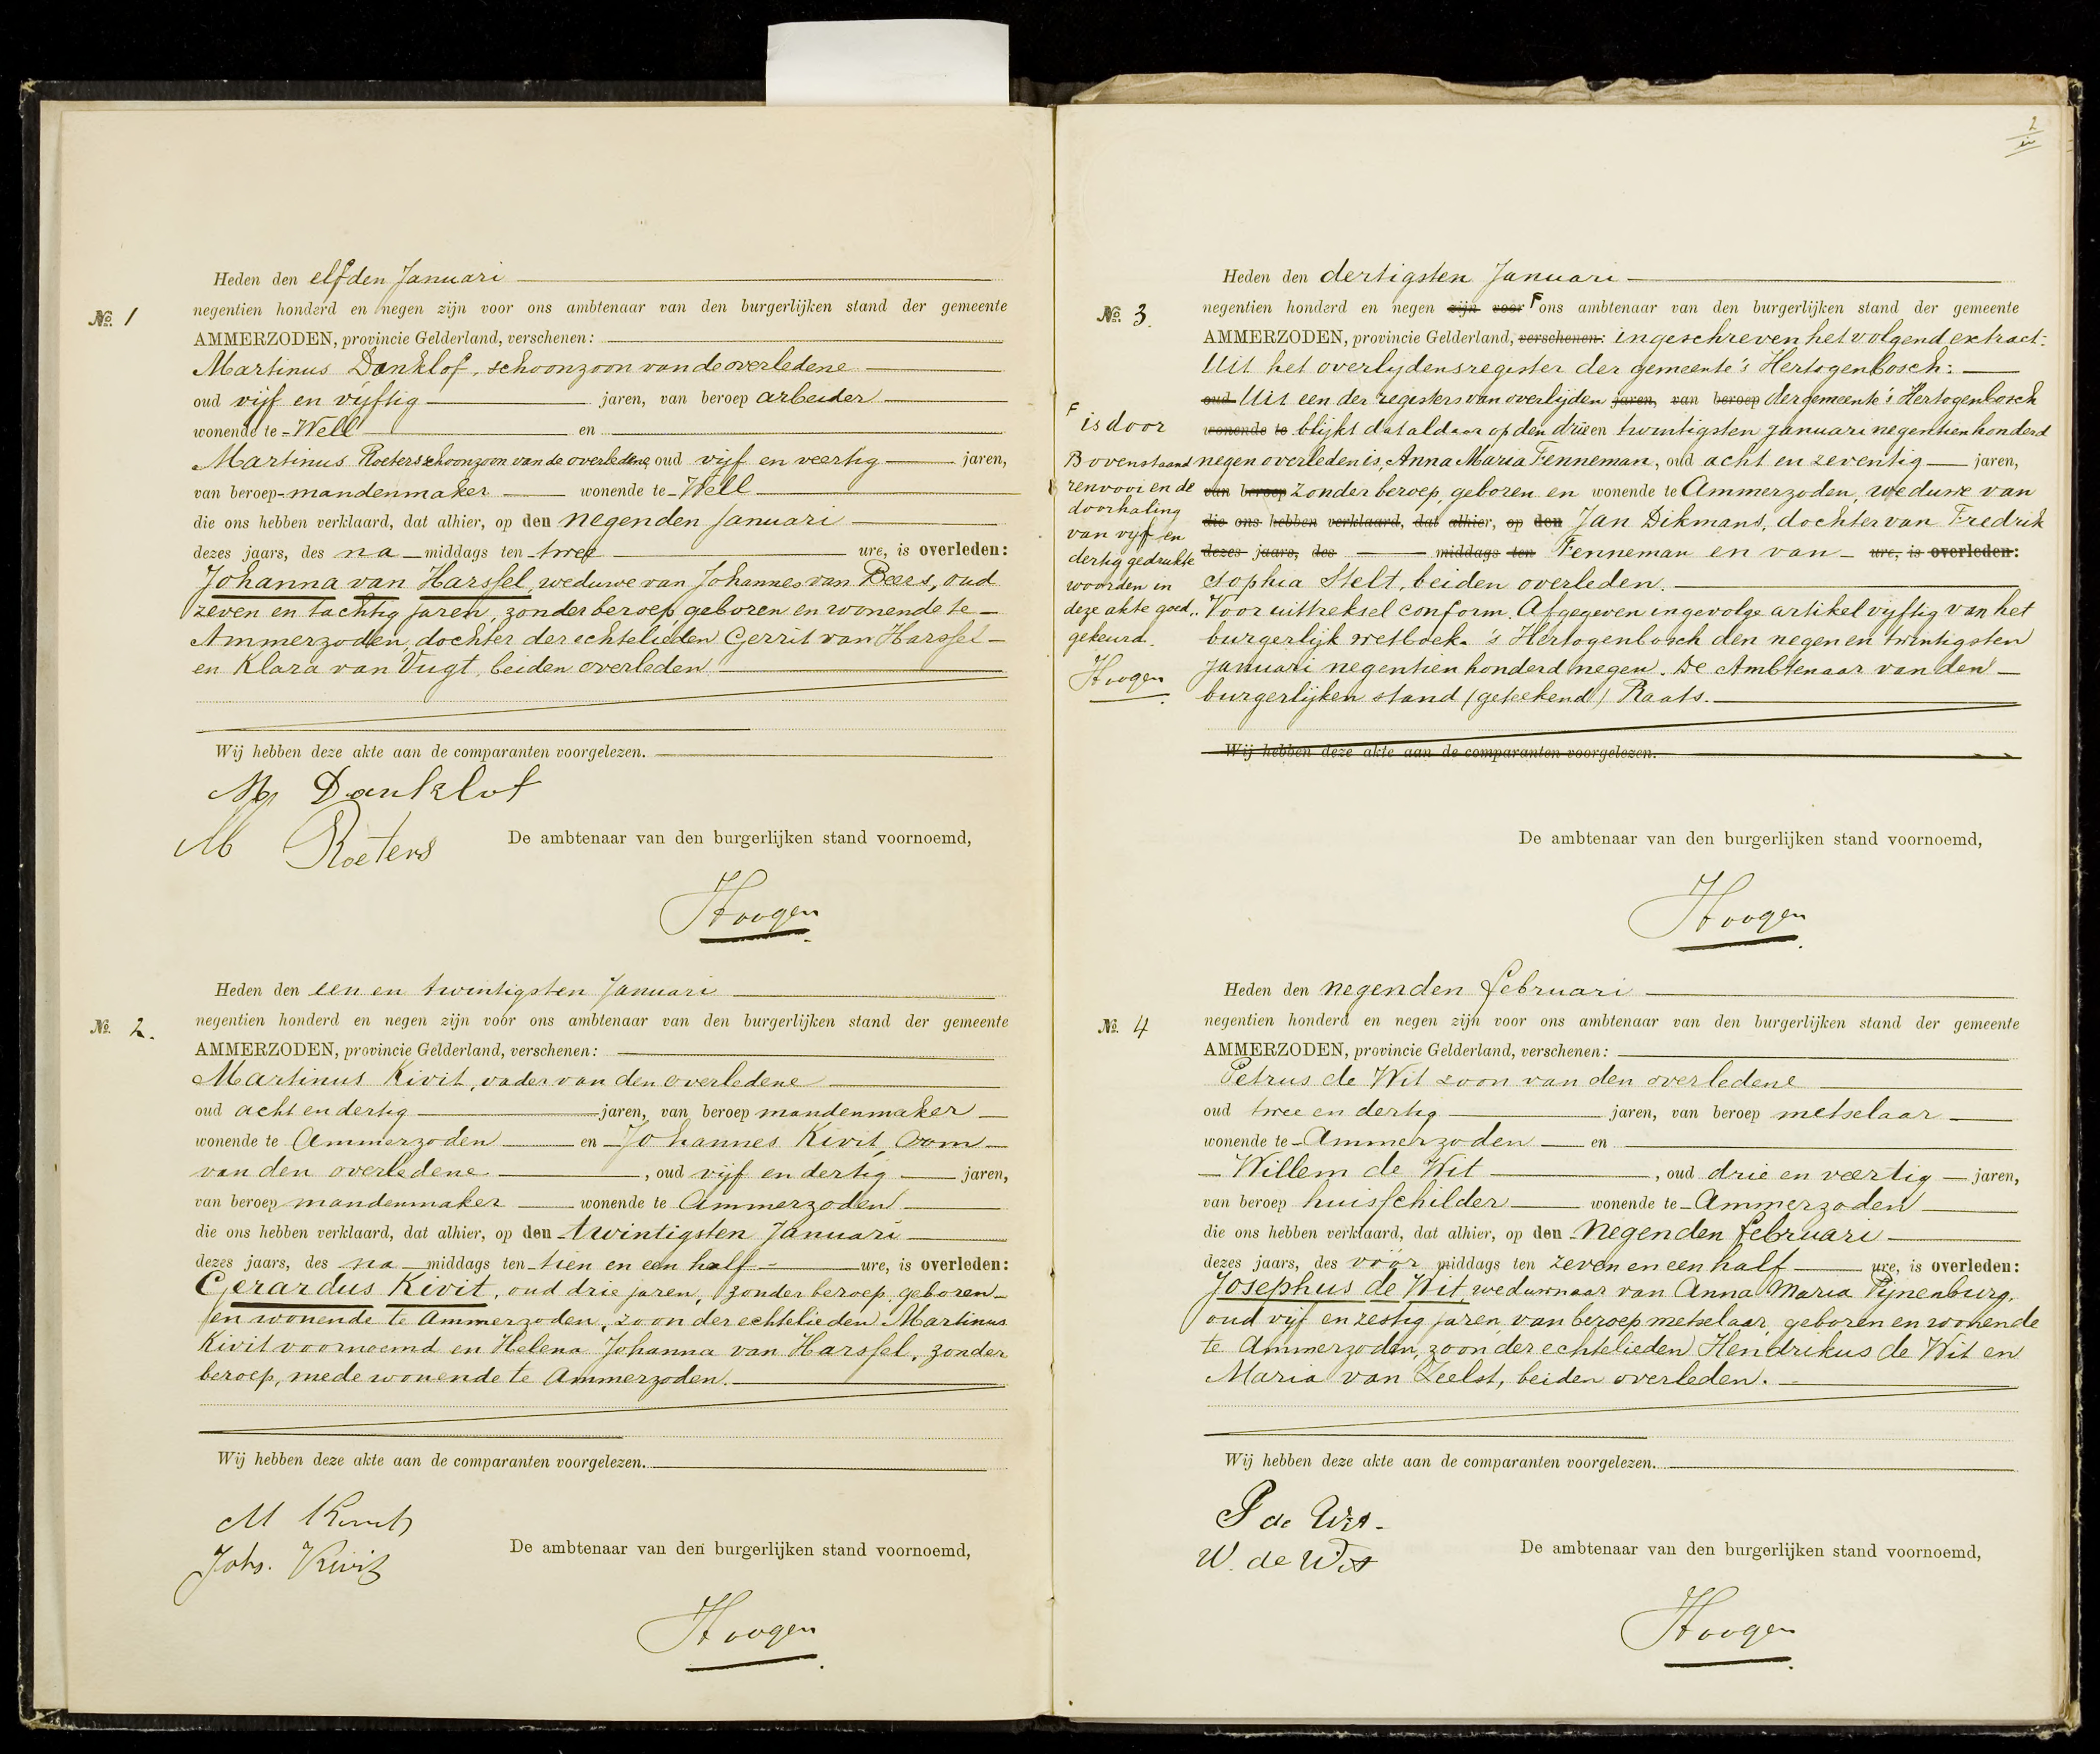 Heden den elfden Januari
No. 1
negentien honderd en negen zijn voor ons ambtenaar van den burgerlijken stand der gemeente
AMMERZODEN, provincie Gelderland, verschenen:
Martinus Danklof, schoonzoon van de overledene
oud vijf en vijftig jaren, van beroep arbeider
wonende te Well en
Martinus Roeters schoonzoon van de overledene, oud vijf en veertig jaren,
van beroep mandenmaker wonende te Well
die ons hebben verklaard, dat alhier, op den negenden Januari
dezes jaars, des na middags ten twee ure, is overleden:
Johanna van Harssel, weduwe van Johannes van Beers, oud
zeven en tachtig jaren, zonder beroep, geboren en wonende te
Ammerzoden, dochter der echtelieden Gerrit van Harssel
en Klara van Vugt, beiden overleden
Wij hebben deze akte aan de comparanten voorgelezen.
M Danklof
M Roeters
De ambtenaar van den burgerlijken stand voornoemd,
Hoogen
Heden den een en twintigsten Januari
No. 2.
negentien honderd en negen zijn voor ons ambtenaar van den burgerlijken stand der gemeente
AMMERZODEN, provincie Gelderland, verschenen:
Martinus Kivit, vader van den overledene
oud acht en dertig jaren, van beroep mandenmaker
wonende te Ammerzoden en Johannes Kivit, Oom
van den overledene, oud vijf en dertig jaren,
van beroep mandenmaker wonende te Ammerzoden
die ons hebben verklaard, dat alhier, op den twintigsten Januari
dezes jaars, des na middags ten tien en een half ure, is overleden:
Gerardus Kivit, oud drie jaren, zonder beroep, geboren
en wonende te Ammerzoden, zoon der echtelieden Martinus
Kivit voornoemd en Helena Johanna van Harssel, zonder
beroep, mede wonende te Ammerzoden.
Wij hebben deze akte aan de comparanten voorgelezen.
M Kivit
Johs. Kivit
De ambtenaar van den burgerlijken stand voornoemd,
Hoogen
2
Heden den dertigsten Januari
No. 3.
negentien honderd en negen zijn voor F ons ambtenaar van den burgerlijken stand der gemeente
AMMERZODEN, provincie Gelderland, verschenen: ingeschreven het volgend extract:
Uit het overlijdensregister der gemeente 's Hertogenbosch:
oud Uit een der registers van overlijden jaren, van beroep der gemeente 's Hertogenbosch
wonende te blijkt dat aldaar op den drie en twintigsten Januari negentienhonderd
negen overleden is, Anna Maria Fenneman, oud acht en zeventig jaren,
van beroep zonder beroep, geboren en wonende te Ammerzoden, weduwe van
die ons hebben verklaard, dat alhier, op den Jan Dikmans, dochter van Fredrik
dezes jaars, des middags ten Fenneman en van ure, is overleden:
Sophia Stelt, beiden overleden.
Voor uittreksel conform. Afgegeven ingevolge artikel vijftig van het
burgerlijk wetboek. 's Hertogenbosch den negen en twintigsten
Januari negentien honderd negen. De Ambtenaar van den
burgerlijken stand (geteekend) Raats.
F is door
Bovenstaand
renvooi en de
doorhaling
van vijf en
dertig gedrukte
woorden in
deze akte goed
gekeurd.
Hoogen
Wij hebben deze akte aan de comparanten voorgelezen.
De ambtenaar van den burgerlijken stand voornoemd,
Hoogen
Heden den negenden Februari
No. 4
negentien honderd en negen zijn voor ons ambtenaar van den burgerlijken stand der gemeente
AMMERZODEN, provincie Gelderland, verschenen:
Petrus de Wit zoon van den overledene
oud twee en dertig jaren, van beroep metselaar
wonende te Ammerzoden en
Willem de Wit, oud drie en veertig jaren,
van beroep huisschilder wonende te Ammerzoden
die ons hebben verklaard, dat alhier, op den negenden Februari
dezes jaars, des vóór middags ten zeven en een half ure, is overleden:
Josephus de Wit, weduwnaar van Anna Maria Pijnenburg,
oud vijf en zestig jaren, van beroep metselaar, geboren en wonende
te Ammerzoden, zoon der echtelieden Hendrikus de Wit en
Maria van Zeelst, beiden overleden.
Wij hebben deze akte aan de comparanten voorgelezen.
P de Wit
W. de Wit
De ambtenaar van den burgerlijken stand voornoemd,
Hoogen